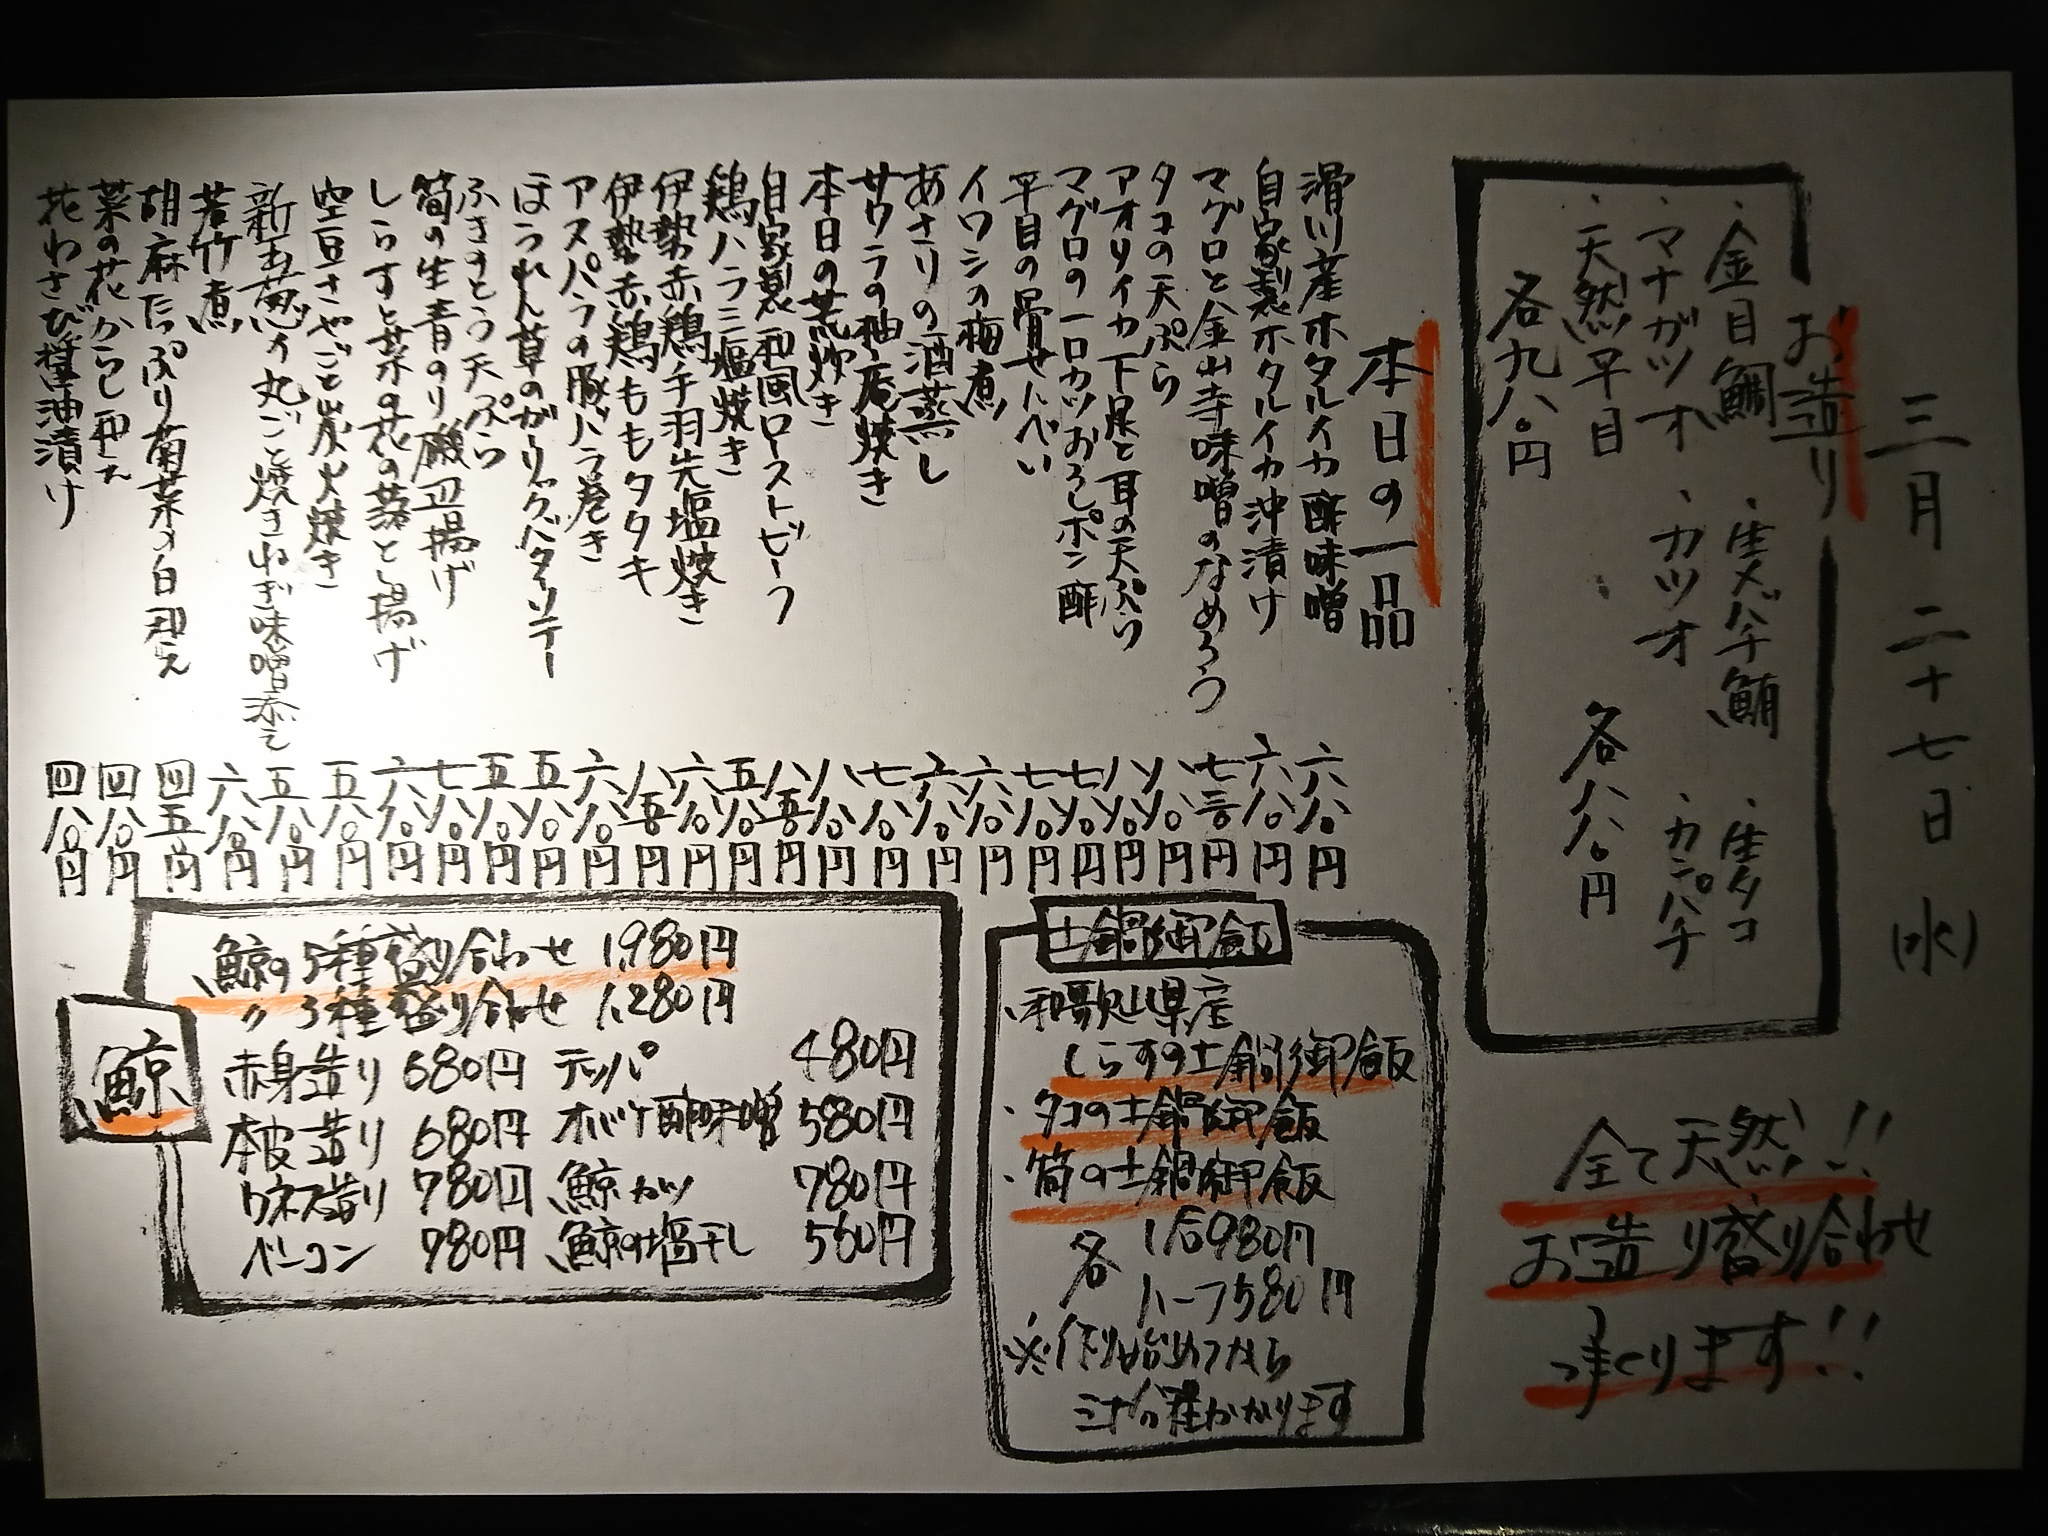 三月二十七日(水)
お造り
・金目鯛 ・生メバチ鮪 ・生タコ
・マナガツオ ・カツオ ・カンパチ
・天然平目 各八八〇円
各九八〇円
全て天然!!
お造り盛り合わせ
承ります!!
本日の一品
滑川産ホタルイカ酢味噌 六八〇円
自家製ホタルイカ沖漬け 六八〇円
マグロと金山寺味噌のなめろう 七三〇円
タコの天ぷら 八八〇円
アオリイカ下足と耳の天ぷら 八八〇円
マグロの一口カツおろしポン酢 七八〇円
平目の骨せんべい 七八〇円
イワシの梅煮 六八〇円
あさりの酒蒸し 六八〇円
サワラの柚庵焼き 七八〇円
本日の荒炊き 八八〇円
自家製和風ローストビーフ 八五〇円
鶏ハラミ塩焼き 五八〇円
伊勢赤鶏手羽先塩焼き 六八〇円
伊勢赤鶏ももタタキ 八五〇円
アスパラの豚バラ巻き 六八〇円
ほうれん草のガーリックバターソテー 五八〇円
ふきのとう天ぷら 五八〇円
筍の生青のり磯辺揚げ 七八〇円
しらすと菜の花の蕗と揚げ 六八〇円
空豆さやごと炭火焼き 五八〇円
新玉葱丸ごと焼きねぎ味噌添え 五八〇円
若竹煮 六八〇円
胡麻たっぷり菊菜の白和え 四五〇円
菜の花からし和え 四八〇円
花わさび醤油漬け 四八〇円
土鍋御飯
・和歌山県産
しらすの土鍋御飯
・タコの土鍋御飯
・筍の土鍋御飯
各 1合980円
ハーフ580円
※作り始めてから
三十分程かかります
鯨
鯨の5種盛り合わせ 1,980円
〃 3種盛り合わせ 1,280円
赤身造り 680円 テッパ 480円
本皮造り 680円 オバケ酢味噌 580円
ウネス造り 780円 鯨カツ 780円
ベーコン 980円 鯨の塩干し 560円